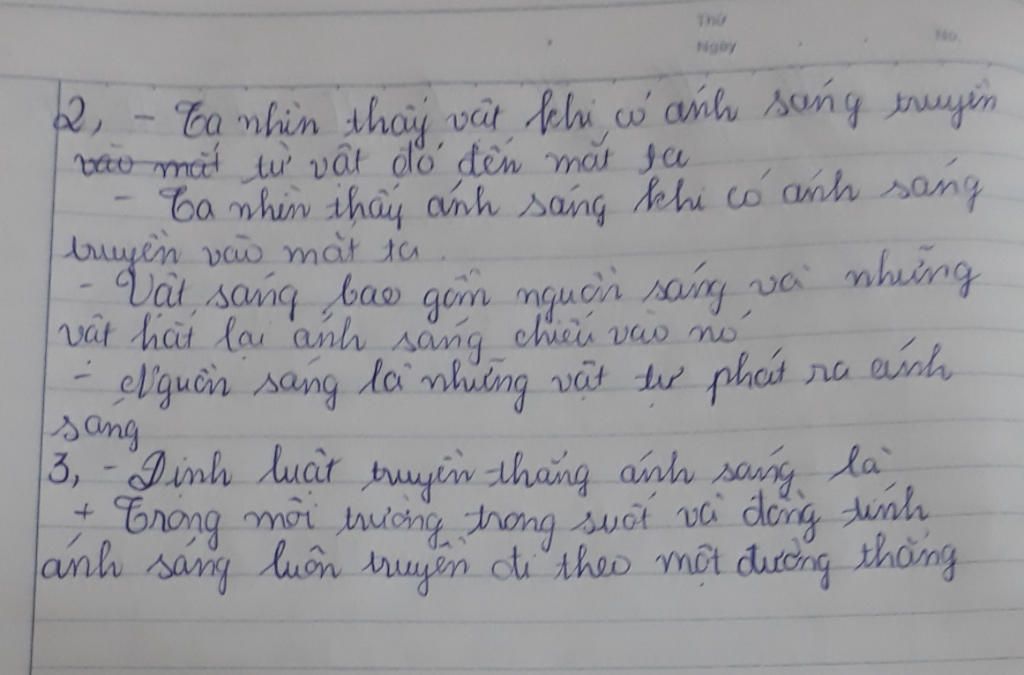 Thứ
Ngày
No.
2, - Ta nhìn thấy vật khi có ánh sáng truyền
vào mắt từ vật đó đến mắt ta
- Ta nhìn thấy ánh sáng khi có ánh sáng
truyền vào mắt ta.
- Vật sáng bao gồm nguồn sáng và những
vật hắt lại ánh sáng chiếu vào nó
- Nguồn sáng là những vật tự phát ra ánh
sáng
3, - Định luật truyền thẳng ánh sáng là
+ Trong môi trường trong suốt và đồng tính
ánh sáng luôn truyền đi theo một đường thẳng